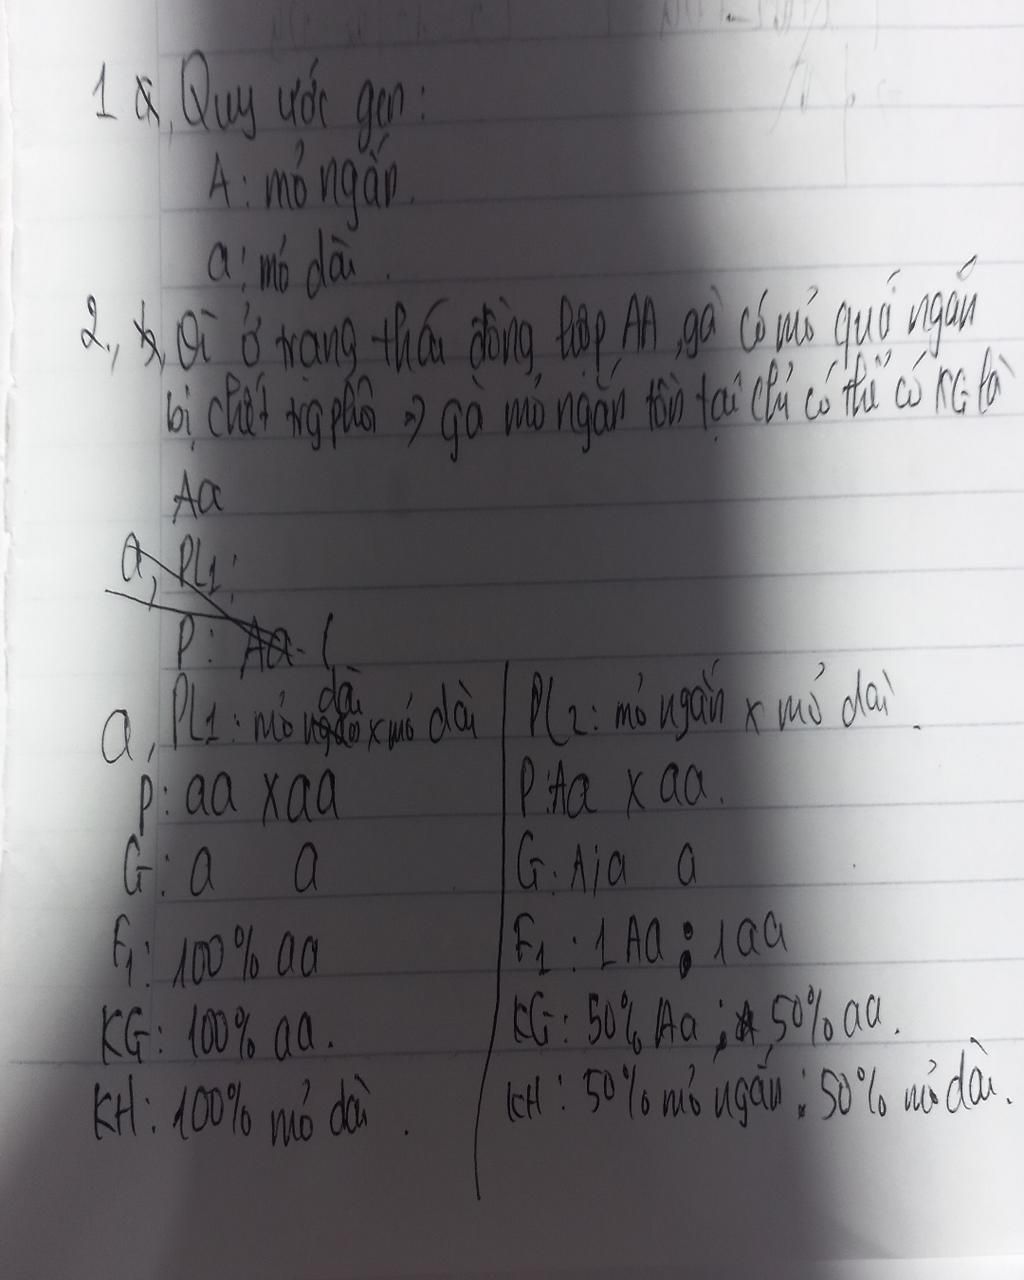 1 a, Quy ước gen:
A: mỏ ngắn.
a: mỏ dài.
2, b, Vì ở trạng thái đồng hợp AA, gà có mỏ quá ngắn
bị chết trg phôi => gà mỏ ngắn tồn tại chỉ có thể có KG là
Aa
a, PL1:
P: Aa (
a, PL1: mỏ dài x mỏ dài
P: aa x aa
G: a a
F1: 100% aa
KG: 100% aa.
KH: 100% mỏ dài.
PL2: mỏ ngắn x mỏ dài.
P: Aa x aa.
G: A; a a
F1: 1 Aa : 1 aa
KG: 50% Aa ; 50% aa.
KH: 50% mỏ ngắn : 50% mỏ dài.